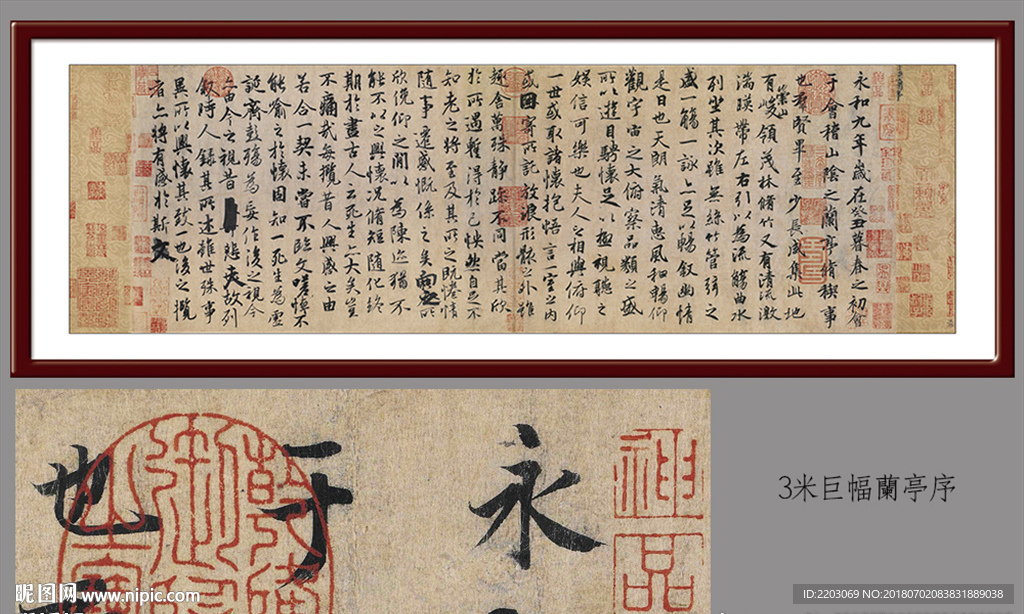 永和九年歲在癸丑暮春之初會
于會稽山陰之蘭亭脩稧事
也羣賢畢至少長咸集此地
有崇山峻領茂林脩竹又有清流激
湍暎帶左右引以為流觴曲水
列坐其次雖無絲竹管弦之
盛一觴一詠亦足以暢敘幽情
是日也天朗氣清惠風和暢仰
觀宇宙之大俯察品類之盛
所以遊目騁懷足以極視聽之
娛信可樂也夫人之相與俯仰
一世或取諸懷抱悟言一室之內
或因寄所託放浪形骸之外雖
趣舍萬殊靜躁不同當其欣
於所遇暫得於己怏然自足不
知老之將至及其所之既惓情
隨事遷感慨係之矣向之所
欣俛仰之閒以為陳迹猶不
能不以之興懷況脩短隨化終
期於盡古人云死生亦大矣豈
不痛哉每攬昔人興感之由
若合一契未嘗不臨文嗟悼不
能喻之於懷固知一死生為虛
誕齊彭殤為妄作後之視今
亦由今之視昔悲夫故列
敘時人錄其所述雖世殊事
異所以興懷其致一也後之攬
者亦將有感於斯文
神品
永
于
也
3米巨幅蘭亭序
昵图网 www.nipic.com
ID:2203069 NO:20180702083831889038